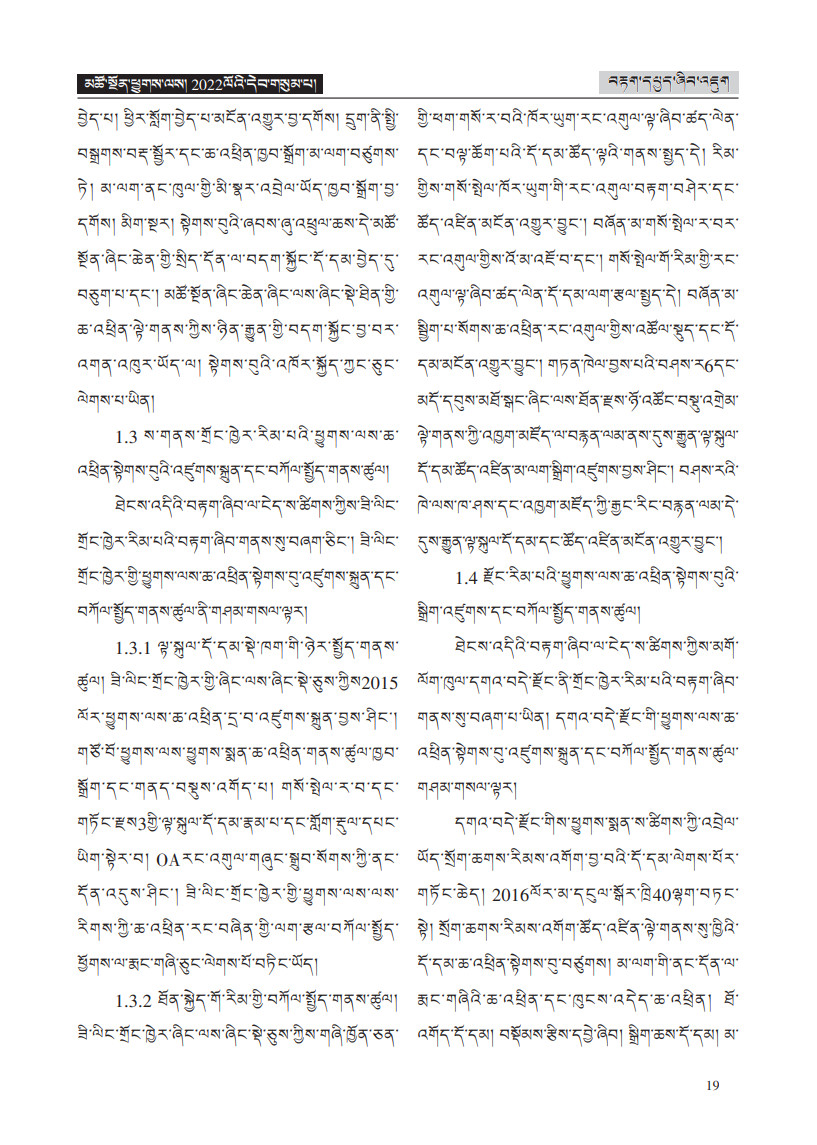 མཚོ་སྔོན་ཕྱུགས་ལས། 2022ལོའི་དེབ་གསུམ་པ།
བརྟག་དཔྱད་ཞིབ་འཇུག
བྱེད་པ། ཕྱིར་སློག་བྱེད་པ་མངོན་འགྱུར་བྱ་དགོས། དྲུག་ནི་སྤྱི་
བསྒྲགས་བརྡ་སྦྱོར་དང་ཆ་འཕྲིན་ཁྱབ་སྒྲོག་མ་ལག་བཙུགས་
ཏེ། མ་ལག་ནང་ཁུལ་གྱི་མི་སྣར་འབྲེལ་ཡོད་ཁྱབ་སྒྲོག་བྱ་
དགོས། མིག་སྔར། སྟེགས་བུའི་ཞབས་ཞུ་འཕྲུལ་ཆས་དེ་མཚོ་
སྔོན་ཞིང་ཆེན་གྱི་སྲིད་དོན་ལ་བདག་སྐྱོང་དོ་དམ་བྱེད་དུ་
བཅུག་པ་དང་། མཚོ་སྔོན་ཞིང་ཆེན་ཞིང་ལས་ཞིང་སྡེ་ཐིན་གྱི་
ཆ་འཕྲིན་ལྟེ་གནས་ཀྱིས་ཉིན་རྒྱུན་གྱི་བདག་སྐྱོང་བྱ་བར་
འགན་འཁུར་ཡོད་ལ། སྟེགས་བུའི་འཁོར་སྐྱོད་ཀྱང་ཅུང་
ལེགས་པ་ཡིན།
1.3 ས་གནས་གྲོང་ཁྱེར་རིམ་པའི་ཕྱུགས་ལས་ཆ་
འཕྲིན་སྟེགས་བུའི་འཛུགས་སྐྲུན་དང་བཀོལ་སྤྱོད་གནས་ཚུལ།
ཐེངས་འདིའི་བརྟག་ཞིབ་ལ་ངེད་ས་ཚིགས་ཀྱིས་ཟི་ལིང་
གྲོང་ཁྱེར་རིམ་པའི་བརྟག་ཞིབ་གནས་སུ་བཞག་ཅིང་། ཟི་ལིང་
གྲོང་ཁྱེར་གྱི་ཕྱུགས་ལས་ཆ་འཕྲིན་སྟེགས་བུ་འཛུགས་སྐྲུན་དང་
བཀོལ་སྤྱོད་གནས་ཚུལ་ནི་གཤམ་གསལ་ལྟར།
1.3.1 ལྟ་སྐུལ་དོ་དམ་སྡེ་ཁག་གི་ཉེར་སྤྱོད་གནས་
ཚུལ། ཟི་ལིང་གྲོང་ཁྱེར་གྱི་ཞིང་ལས་ཞིང་སྡེ་ཅུས་ཀྱིས2015
ལོར་ཕྱུགས་ལས་ཆ་འཕྲིན་དྲ་བ་འཛུགས་སྐྲུན་བྱས་ཤིང་།
གཙོ་བོ་ཕྱུགས་ལས་ཕྱུགས་སྨན་ཆ་འཕྲིན་གནས་ཚུལ་ཁྱབ་
སྒྲོག་དང་གནད་བསྡུས་འགོད་པ། གསོ་སྤེལ་ར་བ་དང་
གཏོང་རྫས3གྱི་ལྟ་སྐུལ་དོ་དམ་རྣམ་པ་དང་གློག་རྡུལ་དཔང་
ཡིག་སྟེར་བ། OAརང་འགུལ་གཞུང་སྒྲུབ་སོགས་ཀྱི་ནང་
དོན་འདུས་ཤིང་། ཟི་ལིང་གྲོང་ཁྱེར་གྱི་ཕྱུགས་ལས་ལས་
རིགས་ཀྱི་ཆ་འཕྲིན་རང་བཞིན་གྱི་ལག་རྩལ་བཀོལ་སྤྱོད་
ཕྱོགས་ལ་རྨང་གཞི་ཅུང་ལེགས་པོ་བཏིང་ཡོད།
1.3.2 ཐོན་སྐྱེད་གོ་རིམ་གྱི་བཀོལ་སྤྱོད་གནས་ཚུལ།
ཟི་ལིང་གྲོང་ཁྱེར་ཞིང་ལས་ཞིང་སྡེ་ཅུས་ཀྱིས་གཞི་ཁྱོན་ཅན་
གྱི་ཕག་གསོ་ར་བའི་ཁོར་ཡུག་རང་འགུལ་ལྟ་ཞིབ་ཚད་ལེན་
དང་བལྟ་ཆོག་པའི་དོ་དམ་ཚོད་ལྟའི་གནས་སྤྱད་དེ། རིམ་
གྱིས་གསོ་སྤེལ་ཁོར་ཡུག་གི་རང་འགུལ་བརྟག་བཤེར་དང་
ཚོད་འཛིན་མངོན་འགྱུར་བྱུང་། བཞོན་མ་གསོ་སྤེལ་ར་བར་
རང་འགུལ་གྱིས་འོ་མ་འཇོ་བ་དང་། གསོ་སྤེལ་གོ་རིམ་གྱི་རང་
འགུལ་ལྟ་ཞིབ་ཚད་ལེན་དོ་དམ་ལག་རྩལ་སྤྱད་དེ། བཞོན་མ་
སྒྲིག་པ་སོགས་ཆ་འཕྲིན་རང་འགུལ་གྱིས་འཚོལ་སྡུད་དང་དོ་
དམ་མངོན་འགྱུར་བྱུང་། གཏན་ཁེལ་བྱས་པའི་བཤས་ར6དང་
མདོ་དབུས་མཐོ་སྒང་ཞིང་ལས་ཐོན་རྫས་ཉོ་འཚོང་བསྡུ་འགྲེམ་
ལྟེ་གནས་ཀྱི་འཁྱག་མཛོད་ལ་བརྙན་ལམ་ནས་དུས་རྒྱུན་ལྟ་སྐུལ་
དོ་དམ་ཚོད་འཛིན་མ་ལག་སྒྲིག་འཛུགས་བྱས་ཤིང་། བཤས་རའི་
ཁེ་ལས་ཁ་ཤས་དང་འཁྱག་མཛོད་ཀྱི་རྒྱང་རིང་བརྙན་ལམ་དེ་
དུས་རྒྱུན་ལྟ་སྐུལ་དོ་དམ་དང་ཚོད་འཛིན་མངོན་འགྱུར་བྱུང་།
1.4 རྫོང་རིམ་པའི་ཕྱུགས་ལས་ཆ་འཕྲིན་སྟེགས་བུའི་
སྒྲིག་འཛུགས་དང་བཀོལ་སྤྱོད་གནས་ཚུལ།
ཐེངས་འདིའི་བརྟག་ཞིབ་ལ་ངེད་ས་ཚིགས་ཀྱིས་མགོ་
ལོག་ཁུལ་དགའ་བདེ་རྫོང་ནི་གྲོང་ཁྱེར་རིམ་པའི་བརྟག་ཞིབ་
གནས་སུ་བཞག་པ་ཡིན། དགའ་བདེ་རྫོང་གི་ཕྱུགས་ལས་ཆ་
འཕྲིན་སྟེགས་བུ་འཛུགས་སྐྲུན་དང་བཀོལ་སྤྱོད་གནས་ཚུལ་
གཤམ་གསལ་ལྟར།
དགའ་བདེ་རྫོང་གིས་ཕྱུགས་སྨན་ས་ཚིགས་ཀྱི་འབྲེལ་
ཡོད་སྲོག་ཆགས་རིམས་འགོག་བྱ་བའི་དོ་དམ་ལེགས་པོར་
གཏོང་ཆེད། 2016ལོར་མ་དངུལ་སྒོར་ཁྲི40ལྷག་བཏང་
སྟེ། སྲོག་ཆགས་རིམས་འགོག་ཚོད་འཛིན་ལྟེ་གནས་སུ་ཁྱིའི་
དོ་དམ་ཆ་འཕྲིན་སྟེགས་བུ་བཙུགས། མ་ལག་གི་ནང་དོན་ལ་
རྨང་གཞིའི་ཆ་འཕྲིན་དང་ཁུངས་འདེད་ཆ་འཕྲིན། ཐོ་
འགོད་དོ་དམ། བསྡོམས་རྩིས་དབྱེ་ཞིབ། སྒྲིག་ཆས་དོ་དམ། མ་
19